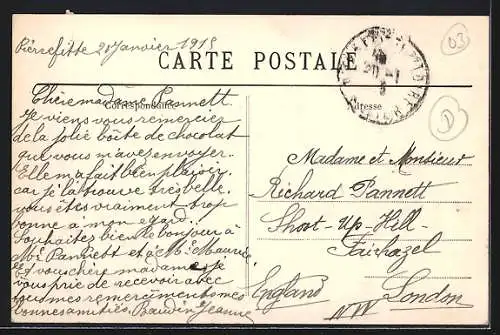 Pierrefitte 20 Janvier 1915
CARTE POSTALE
Correspondance
Adresse
Chère madame Pannett
Je viens vous remercier
de la jolie boîte de chocolat
que vous m'avez envoyer.
Elle m'a fait bien plaisir
car je la trouve très belle.
vous êtes vraiment trop
bonne à mon égard.
Souhaités bien le bonjour à
Mr Pannett et à Mr Maurice
Et vous chère madame je
vous prie de recevoir avec
tous mes remerciements mes
bonnes amitiés. Bauvin Jeanne
Madame et Monsieur
Richard Pannett
Shoot-Up-Hell-
Fairhazel
London
England
NW
03
D